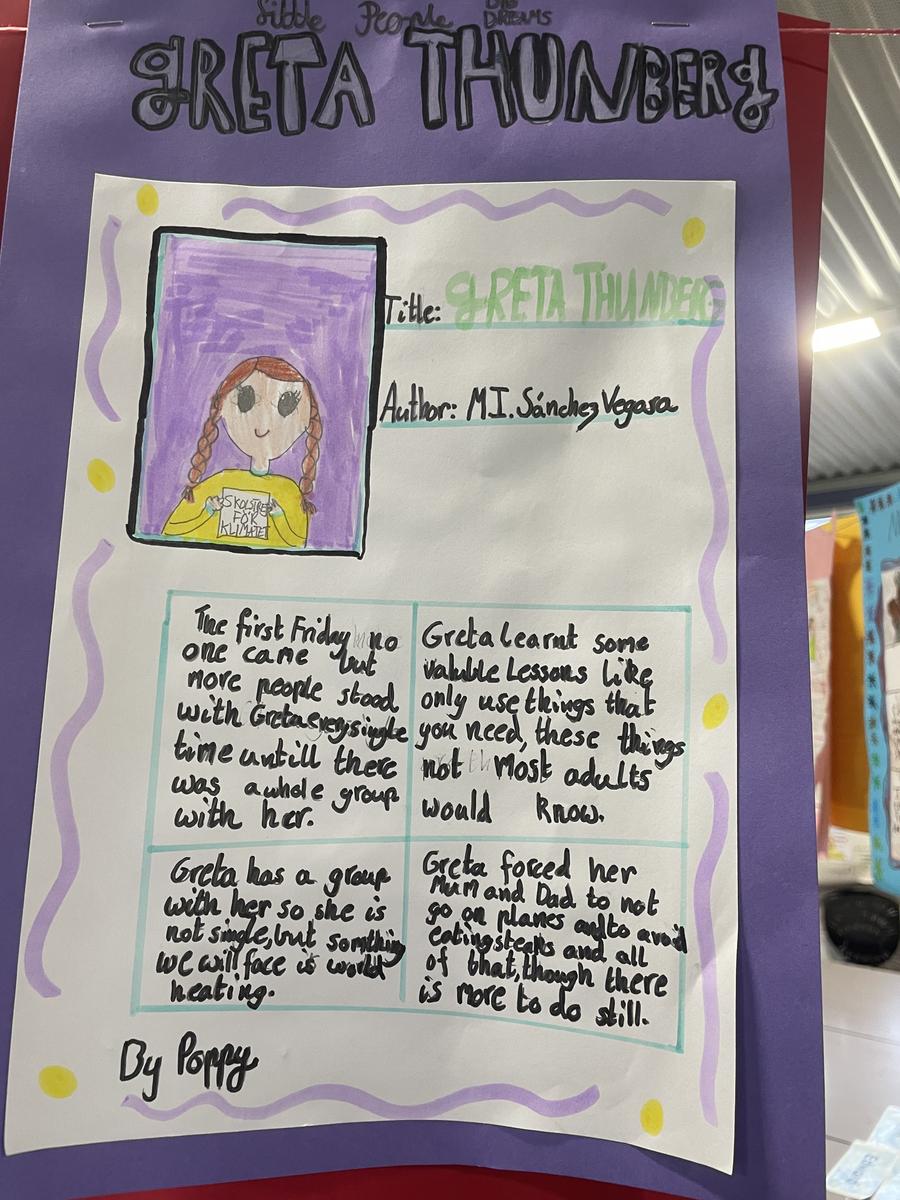 Little People BIG DREAMS
gRETA THUNBERg
Title: gRETA THUNBERG
Author: M I. Sánchez Vegara
SKOLSTREJK
FÖR
KLIMATET
The first Friday no
one came but
more people stood
with Greta every single
time untill there
was a whole group
with her.
Greta learnt some
valuble Lessons like
only use things that
you need, these things
not most adults
would know.
Greta has a group
with her so she is
not single, but somthing
we will face is world
heating.
Greta forced her
Mum and Dad to not
go on planes and to avoid
eating steaks and all
of that, though there
is more to do still.
By Poppy